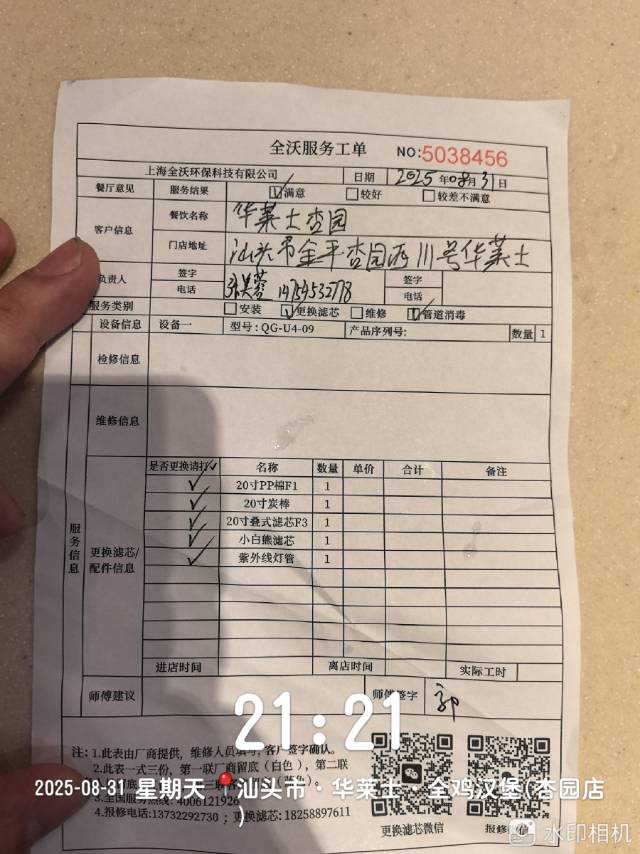 全沃服务工单 NO:5038456
上海全沃环保科技有限公司 日期 2025年08月31日
餐厅意见 服务结果 满意 较好 较差不满意
客户信息 餐饮名称 华莱士杏园
门店地址 汕头市金平杏园西川号华莱士
负责人 签字 签字
电话 电话
服务类别 安装 更换滤芯 维修 管道消毒
设备信息 设备一 型号:QG-U4-09 产品序列号: 数量 1
检修信息
维修信息
服务信息
更换滤芯/配件信息
是否更换请打✓ 名称 数量 单价 合计 备注
✓ 20寸PP棉F1 1
✓ 20寸炭棒 1
✓ 20寸叠式滤芯F3 1
✓ 小白熊滤芯 1
✓ 紫外线灯管 1
进店时间 离店时间 实际工时
师傅建议 师傅签字 郭
21:21
注:1.此表由厂商提供,维修人员填写,客户签字确认。
2.此表一式三份,第一联厂商留底(白色),第二联
2025-08-31 星期天 汕头市·华莱士·全鸡汉堡(杏园店)
3.全国服务热线:4006121926
4.报修电话:13732292730;更换滤芯:18258897611
更换滤芯微信 报修
水印相机